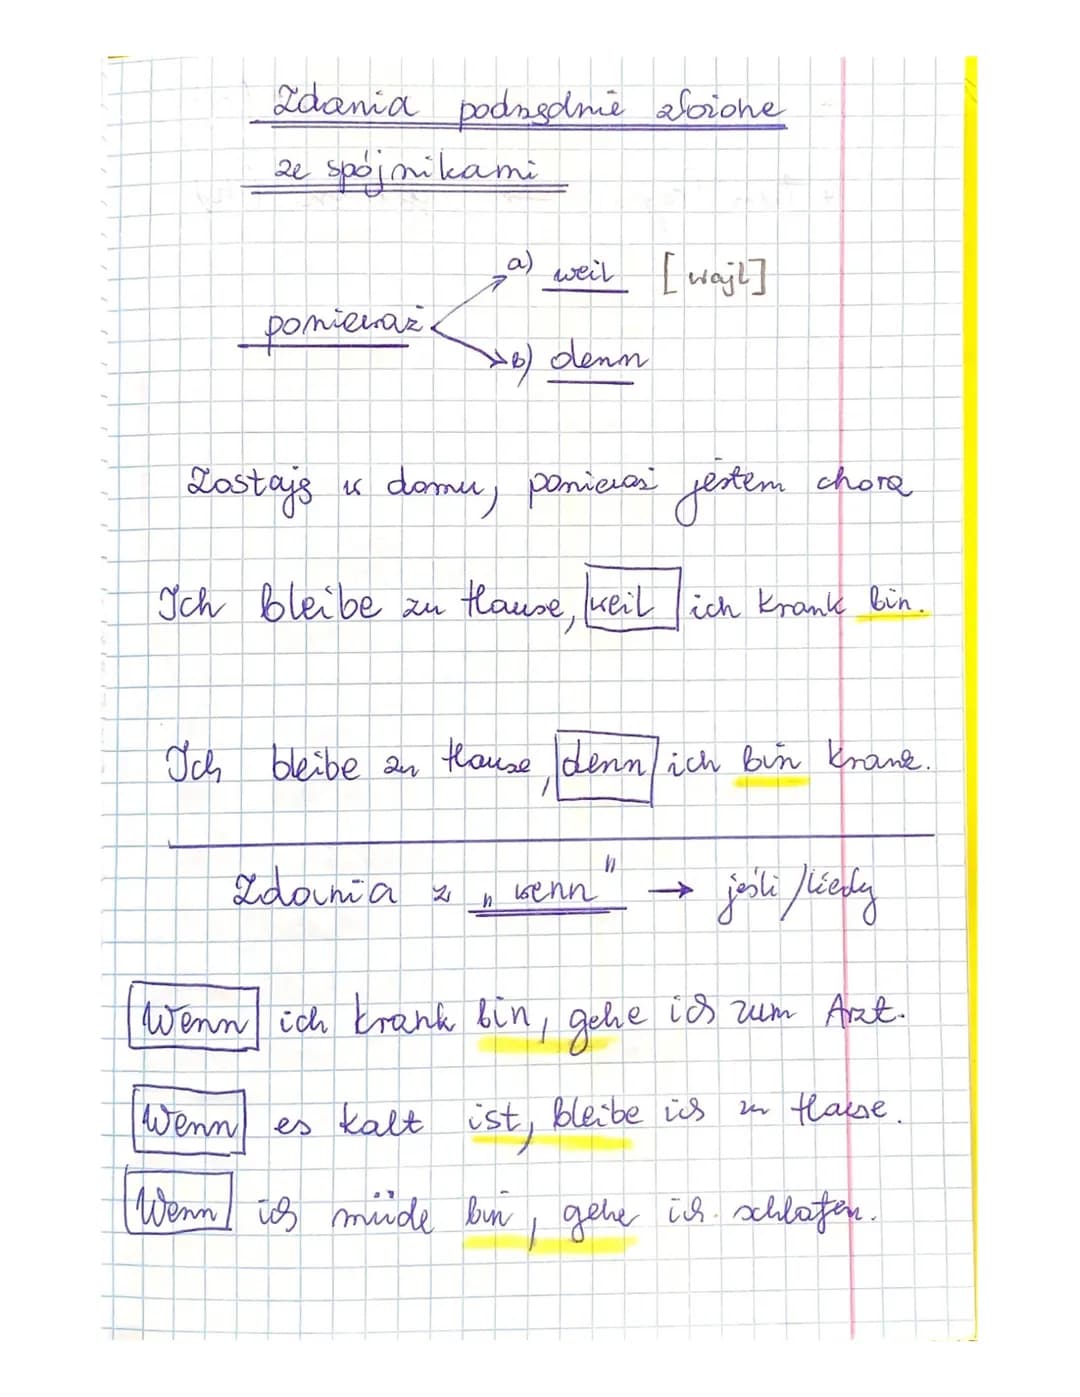 Zdania podrzędnie złożone
ze spójnikami
a) weil [wajl]
ponieważ
b) denn
Zostaję w domu, ponieważ jestem chora
Ich bleibe zu Hause, weil ich krank bin.
Ich bleibe zu Hause, denn ich bin krank.
Zdania z „wenn" → jeśli/kiedy
Wenn ich krank bin, gehe ich zum Arzt.
Wenn es kalt ist, bleibe ich zu Hause.
Wenn ich müde bin, gehe ich schlafen.